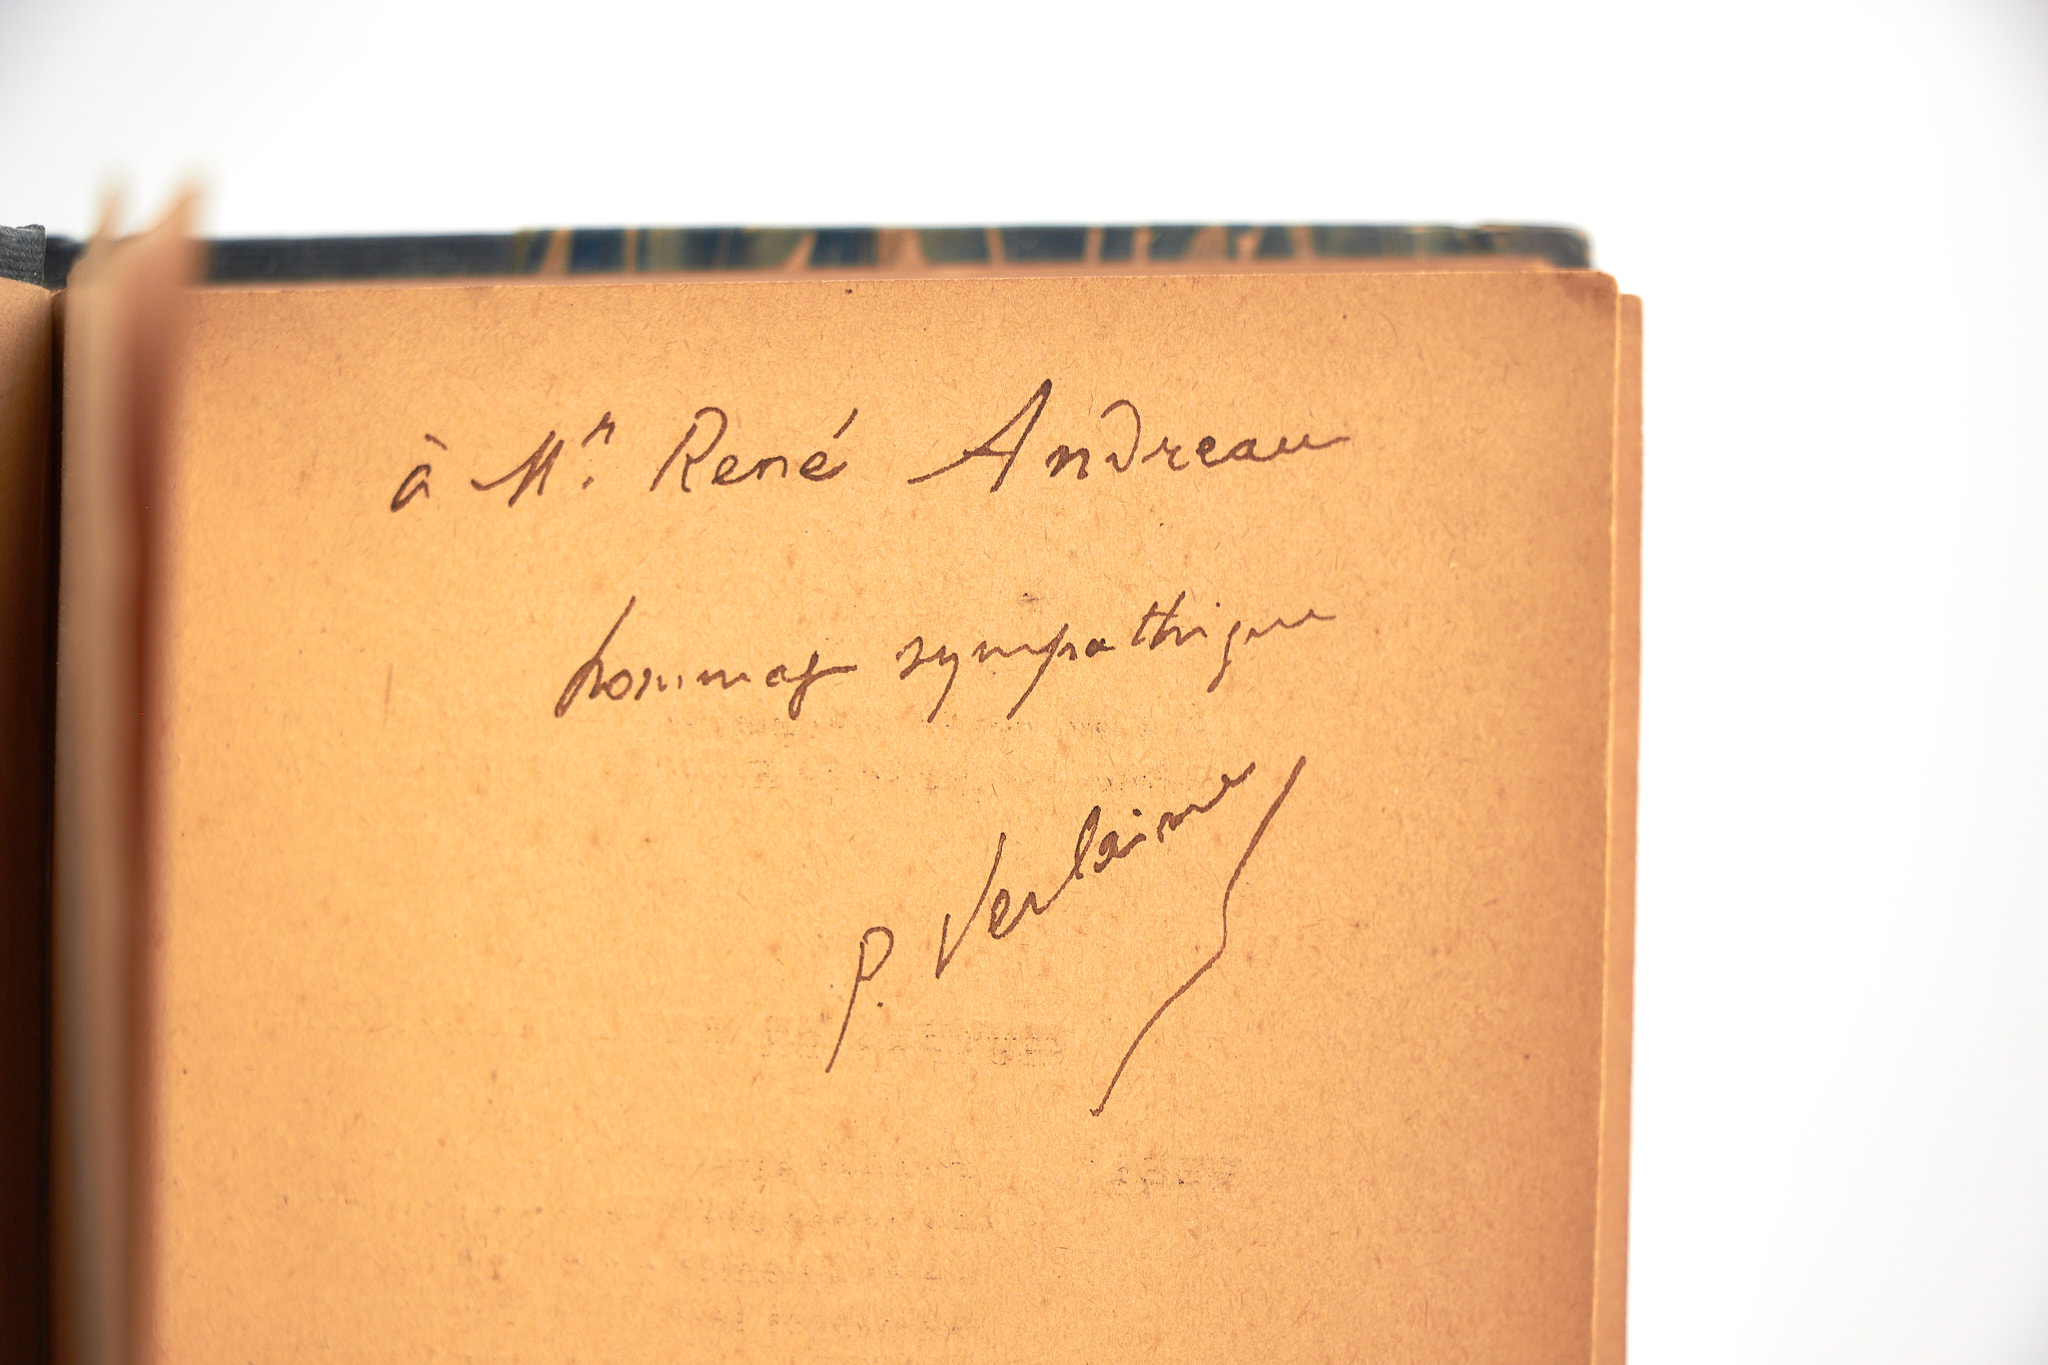 à Mr. René Andreau
hommage sympathique
P. Verlaine